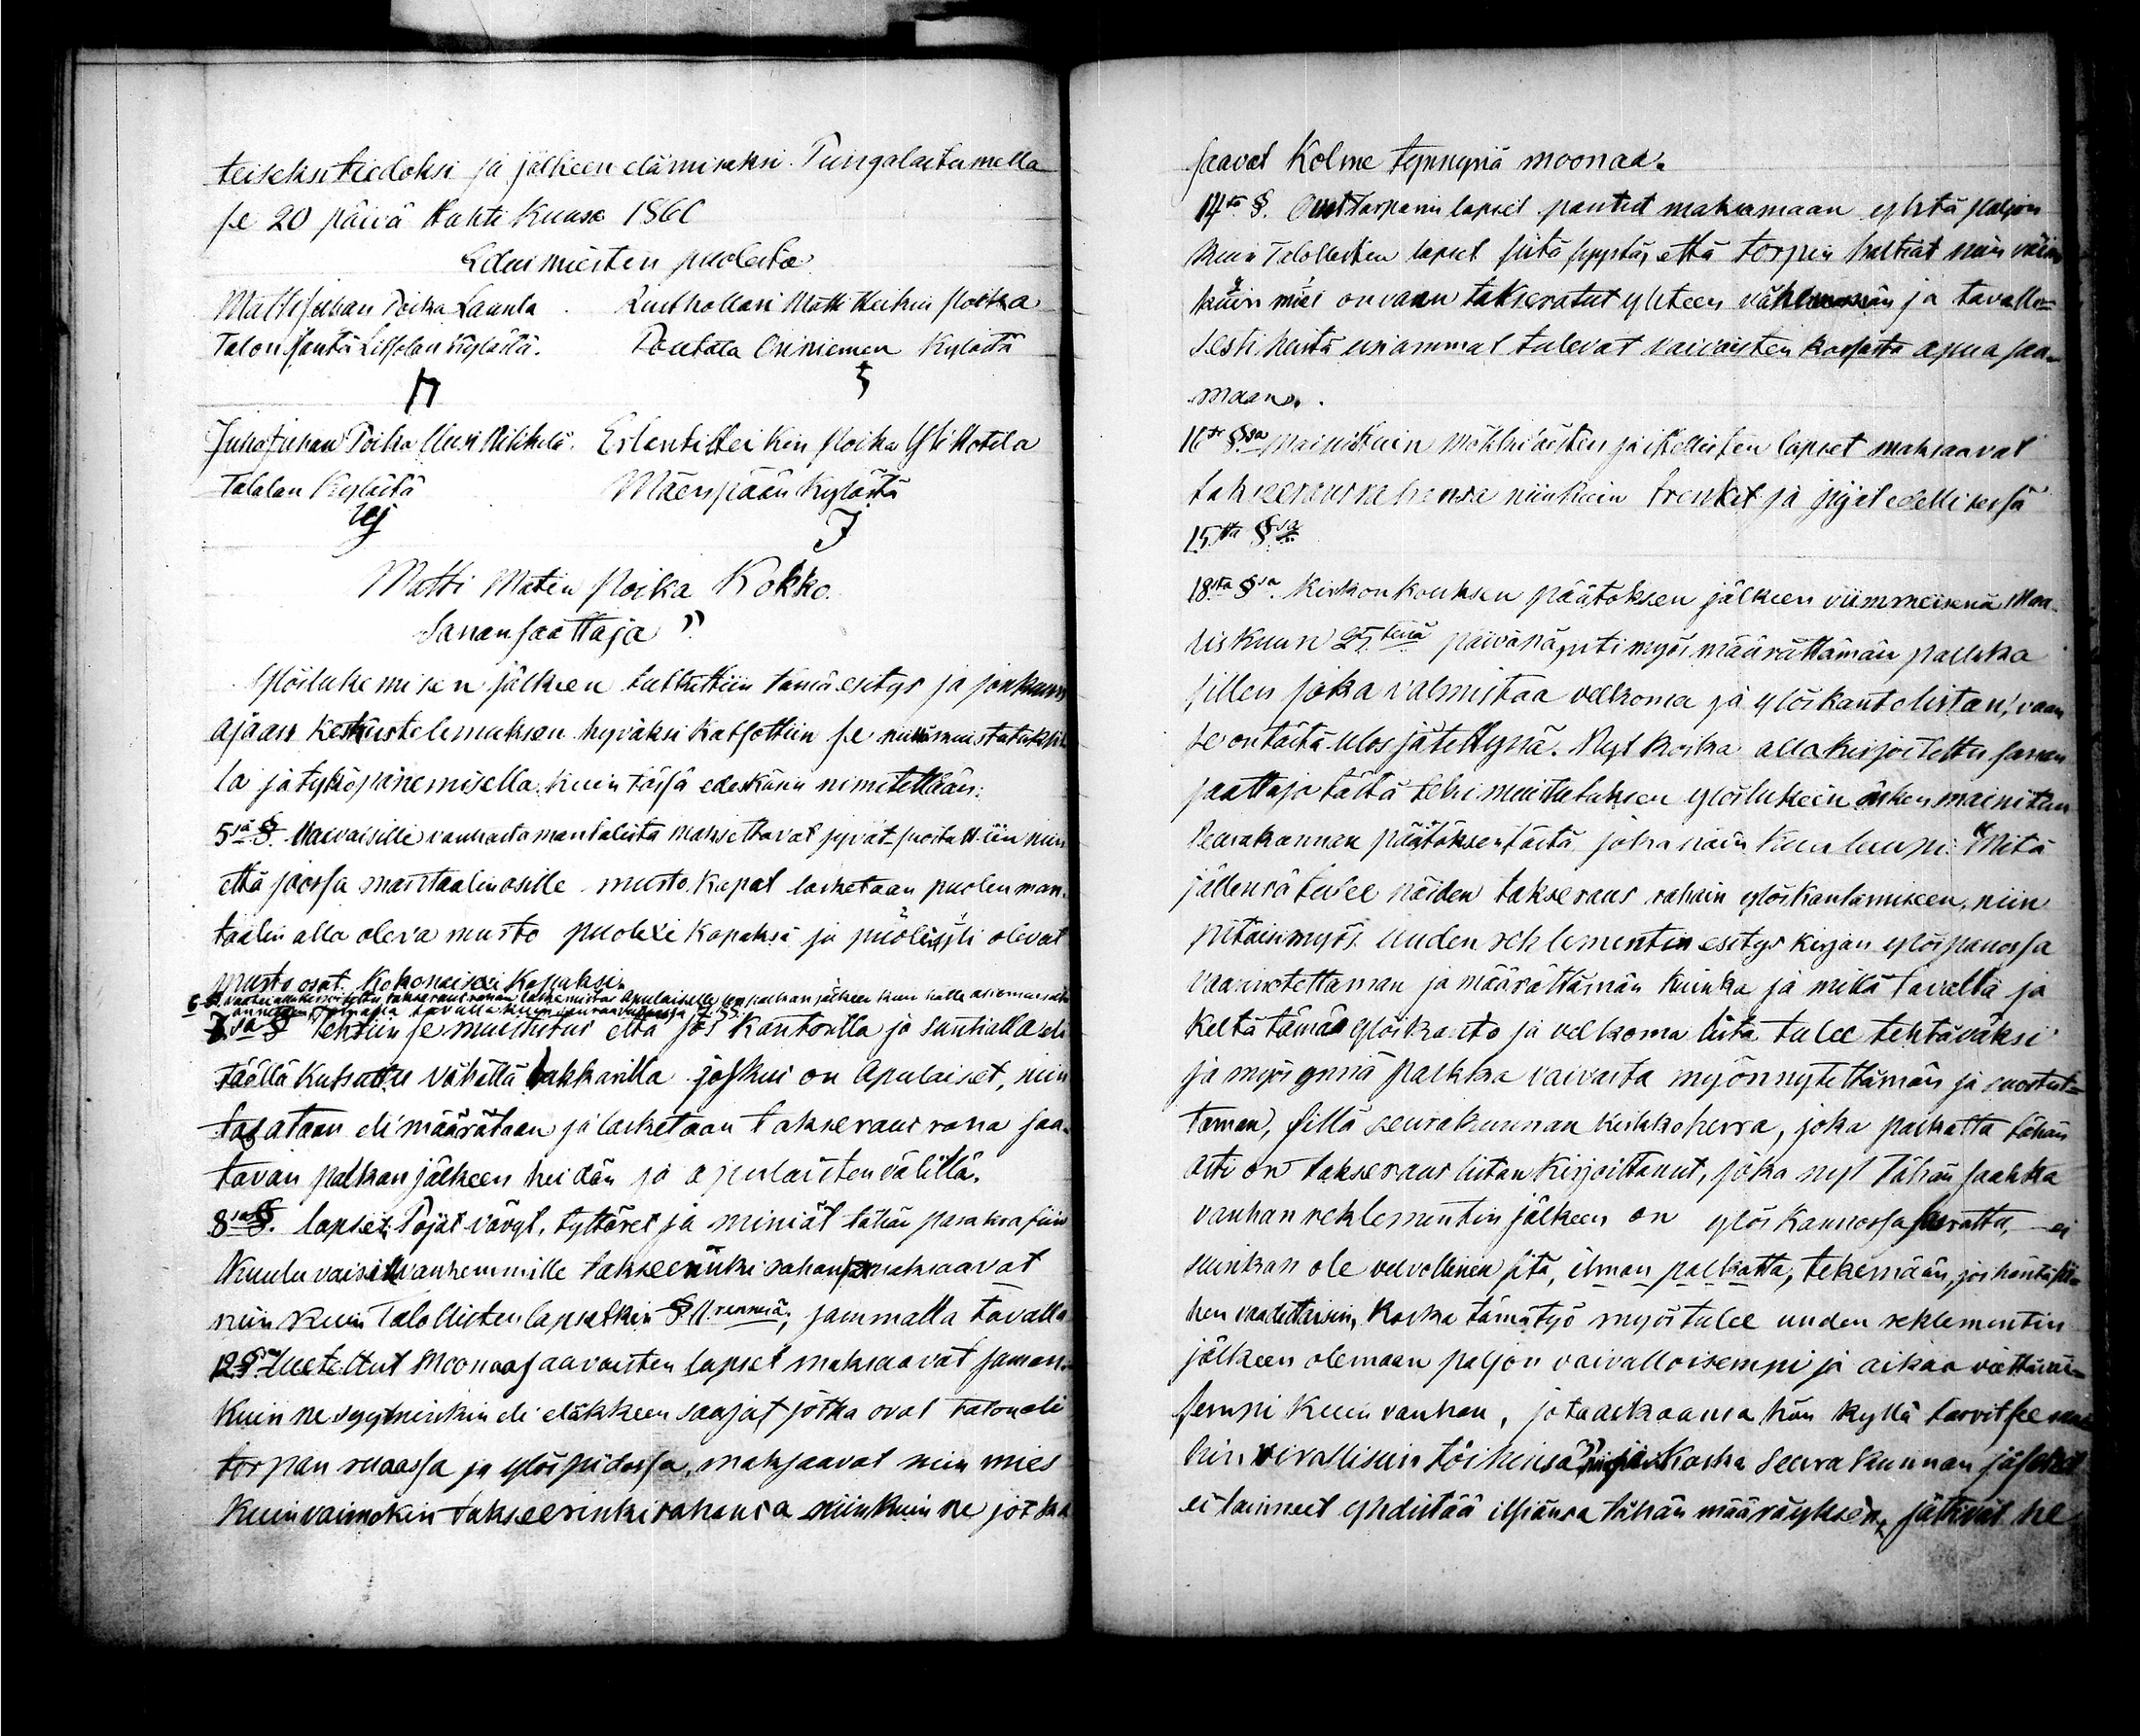 teiseksi tiedoksi ja jälkeen elämiseksi. Pungalaitumella
se 20 päivä Huhti Kuusa 1860
Edusmiesten puolesta
Matti Juhan Poika Laurila
Talon Isäntä Liitsolan Kylästä.
Rusthollari Matti Heikin Poika
Pentola Oriniemen Kylästä
Juha Juhan Poika Uusi Mikkola
Talalan Kylästä
Erlanti Heikin Poika Yli Hotila
Mäenpään Kylästä
Matti Matin Poika Kokko.
Sanansaattaja
Ylösluke misen jälkeen tutkittiin tämä esitys ja jonkuun
ajaan keskustelemuksen hyväksi katsottiin se muistutuksil-
la ja tykö panemisella kuin tässä edeskäsin nimitetään:
5sä §. Vaivaisille vanhasta mantalista maksettavat jyvät suostuttiin niin
että joossa mantaalin osille musto kapat lasketaan puolen man-
taalin alla oleva musto puolexi kapaksi ja puolen yli olevat
musto osat Kokonaisexi Kapaksi.
7 sä § Tehtiin se muistutus että jos Kanttorilla ja Suntialla eli
täällä kutsuttu Vähällä lukkarilla joskus on Apulaiset, niin
tasataan eli määrätään ja lasketaan takseraus raha saa-
tavan palkan jälkeen heidän ja apulaisten välillä.
8sa §. lapset, Pojat vävyt, tyttäret ja miniät tähän parakrafiin
Kuuluvaisille vanhemmille takseerinki rahansa maksaavat
niin kuin Talollisten lapsetkin § 11 rennesä, sammalla tavalla
12 § luetellut Moonaa saavaisten lapset maksaavat saman
Kuin ne syytninkin eli eläkkeen saajat jotka ovat talon eli
torpan ruaassa ja ylöspidossa, maksaavat niin mies
Kuin vaimokin takseerinki rahansa niinkuin ne jotka
saavat Kolme tynnyriä moonaa.
14ta §. Ovat torparin lapset pantut maksamaan yhtä paljon
kuin Talollisten lapset siitä syystä, että torpin haltiat niin vaimo
kuin mies on vaan takseratut yhteen vähempään ja tavalli-
sesti heistä useammat tulevat vaivaisten kassasta apua saa-
maan.
16ta § sa mainitkuin mökkiläisten ja itellisten lapset maksaavat
takseraus rahansa niinkuin trenkit ja piijat edellisessä
15tta § sa
18sta § sa. Kirkonkouksen päätöksen jälkeen viimmeisenä Maa-
liskuun 25 tenä päivänä, piti myös määrättämän palkka
sillen joka valmistaa velkoma ja ylöskantolistan, vaan
se on tästä ulos jätettynä. Nyt koska allakirjoitettu sanan
saattaja tästä teki muistutuksen ylöslukein äsken mainitun
Seurakunnan päätöksen tästä joka näin kuuluupi: "Mitä
jällensä tulee näiden takseraus rahain ylöskantamiseen, niin
pitäisi myös uuden reklementin esitys kirjan ylöspanossa
vaarinotettaman ja määrättämän kuinka ja millä tavalla ja
keltä tämä ylöskanto ja velkoma lista tulee tehtäväksi
ja myös ynnä palkka vaivasta myönnytettämän ja suostut-
taman, sillä seurakunnan kirkkoherra, joka palkatta tähän
asti on takseraus listan kirjoittanut, joka nyt tähän saakka
vanhan reklementin jälkeen on ylös kannossa seurattu, ei
suinkan ole velvollinen sitä, ilman palkatta, tekemään, jos häntä sii-
hen vaadittaisiin, Koska tämä työ myös tulee uuden reklementin
jälkeen olemaan paljon vaivalloisempi ja aikaa viettäväi-
sempi kuin vanhan, jota aikaansa hän kyllä tarvitsee mui-
hin virallisiin töihinsä", Koska Seurakunnan jäsenet
ei tainneet yhdistää itsiänsä tähän määräykseen, jättivät he